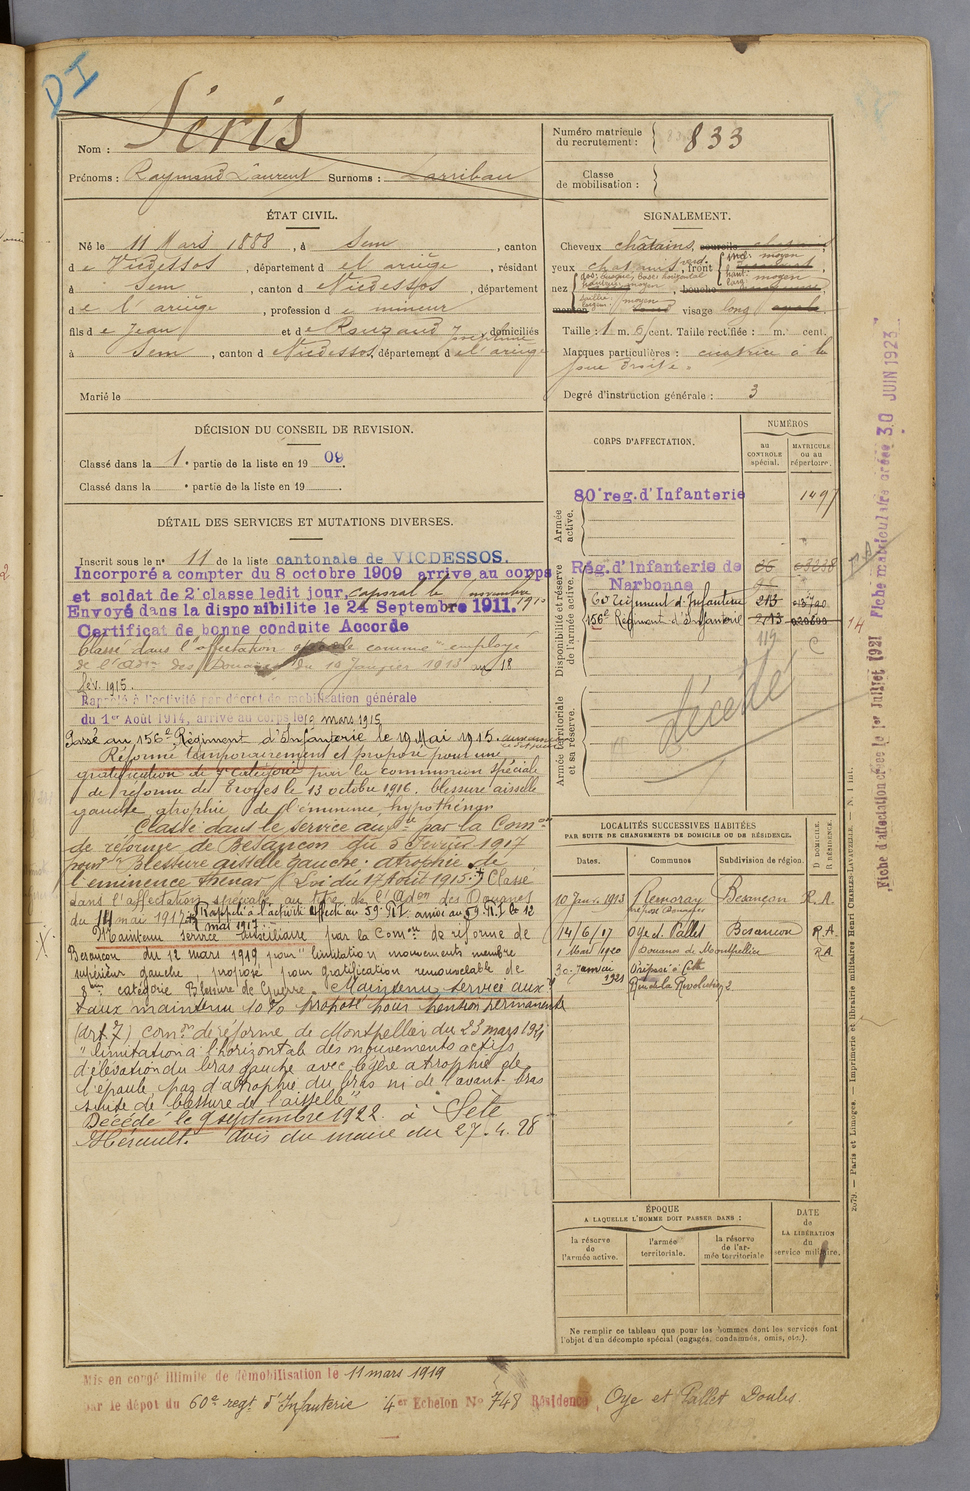 DI
Nom : Séris
Prénoms : Raymond Laurent Surnoms : Larribau
Numéro matricule du recrutement : 833
Classe de mobilisation :
ÉTAT CIVIL.
Né le 11 Mars 1888, à Sem, canton
de Vicdessos, département de l'ariège, résidant
à Sem, canton de Vicdessos, département
de l'ariège, profession de mineur
fils de Jean et de Rouzaud Joséphine, domiciliés
à Sem, canton de Vicdessos, département de l'ariège
Marié le
SIGNALEMENT.
Cheveux châtains,
yeux chatains, front
nez dos: busqué, base: horizontal
visage long
Taille : 1 m. 6 cent. Taille rectifiée : m. cent.
Marques particulières : cicatrice à la
joue droite.
Degré d'instruction générale : 3
DÉCISION DU CONSEIL DE REVISION.
Classé dans la 1e partie de la liste en 1909.
Classé dans la e partie de la liste en 19 .
DÉTAIL DES SERVICES ET MUTATIONS DIVERSES.
Inscrit sous le n° 11 de la liste cantonale de VICDESSOS.
Incorporé a compter du 8 octobre 1909 arrivé au corps
et soldat de 2e classe ledit jour, caporal le novembre 1910
Envoyé dans la disponibilite le 24 Septembre 1911.
Certificat de bonne conduite Accorde
Classé dans l'affectation spéciale comme employé
de l'Adon des Douanes du 10 Janvier 1913 au 18
fév. 1915.
Rappelé à l'activité par décret de mobilisation générale
du 1er Août 1914, arrivé au corps le 19 mars 1915
Passé au 156e Régiment d'Infanterie le 19 Mai 1915.
Réformé temporairement et proposé pour une
gratification de 7e catégorie par la commission spéciale
de réforme de Troyes le 13 octobre 1916, blessure aisselle
gauche, atrophie de l'éminence hypothénar
Classé dans le service auxre par la Comon
de réforme de Besançon du 3 février 1917
pour "Blessure aisselle gauche. atrophie de
l'éminence thénar (Loi du 17 Août 1915.) Classé
dans l'affectation spéciale au titre de l'Adon des Douanes
du 14 mai 1917. Rappelé à l'activité affecté au 59e R.I. arrivé au 59 R.I le 12
mai 1917
Maintenu service auxiliaire par la Comon de réforme de
Besançon du 12 mars 1919, pour "limitation mouvements membre
supérieur gauche, proposé pour gratification renouvelable de
8eme catégorie Blessure de Guerre. Maintenu service auxre
taux maintenu 10% proposé pour pension permanente
(art 7) comon de réforme de Montpellier du 23 mars 1921
"limitation à l'horizontale des mouvements actifs
d'élévation du bras gauche avec légère atrophie de
l'épaule, pas d'atrophie du bras ni de l'avant-bras
suite de blessure de l'aisselle"
Décédé le 9 septembre 1922 à Sète
Hérault. Avis du maire du 27.4.28
CORPS D'AFFECTATION.
NUMÉROS
au CONTROLE spécial.
MATRICULE ou au répertoire.
Armée active.
80e reg. d'Infanterie 1497
Disponibilité et réserve de l'armée active.
Rég. d'Infanterie de
Narbonne
60 Régiment d'Infanterie 213
156e Régiment d'Infanterie 213
14
Armée territoriale et sa réserve.
décédé
LOCALITÉS SUCCESSIVES HABITÉES
PAR SUITE DE CHANGEMENTS DE DOMICILE OU DE RÉSIDENCE.
Dates. Communes Subdivision de région. D DOMICILE. R RÉSIDENCE.
10 Janv. 1913 Remoray Besançon R.A.
préposé Douanes
14/6/17 Oye et Pallet Besançon R.A.
1 Mai 1920 Douanes de Montpellier R.A.
30 Janvier 1921 Préposé à Cette
Rue de la Révolution 2
ÉPOQUE
A LAQUELLE L'HOMME DOIT PASSER DANS :
la réserve de l'armée active.
l'armée territoriale.
la réserve de l'armée territoriale
DATE de LA LIBÉRATION du service militaire.
Ne remplir ce tableau que pour les hommes dont les services font
l'objet d'un décompte spécial (engagés, condamnés, omis, etc.).
Mis en congé illimité de démobilisation le 11 mars 1919
par le dépot du 60e regt d'Infanterie 4er Echelon No 748 Résidence Oye et Pallet Doubs
Fiche d'affectation créée le 1er Juillet 1921 Fiche matriculaire créée 30 JUIN 1923
2079. — Paris et Limoges. — Imprimerie et librairie militaires Henri CHARLES-LAVAUZELLE. — N. 1 bis.